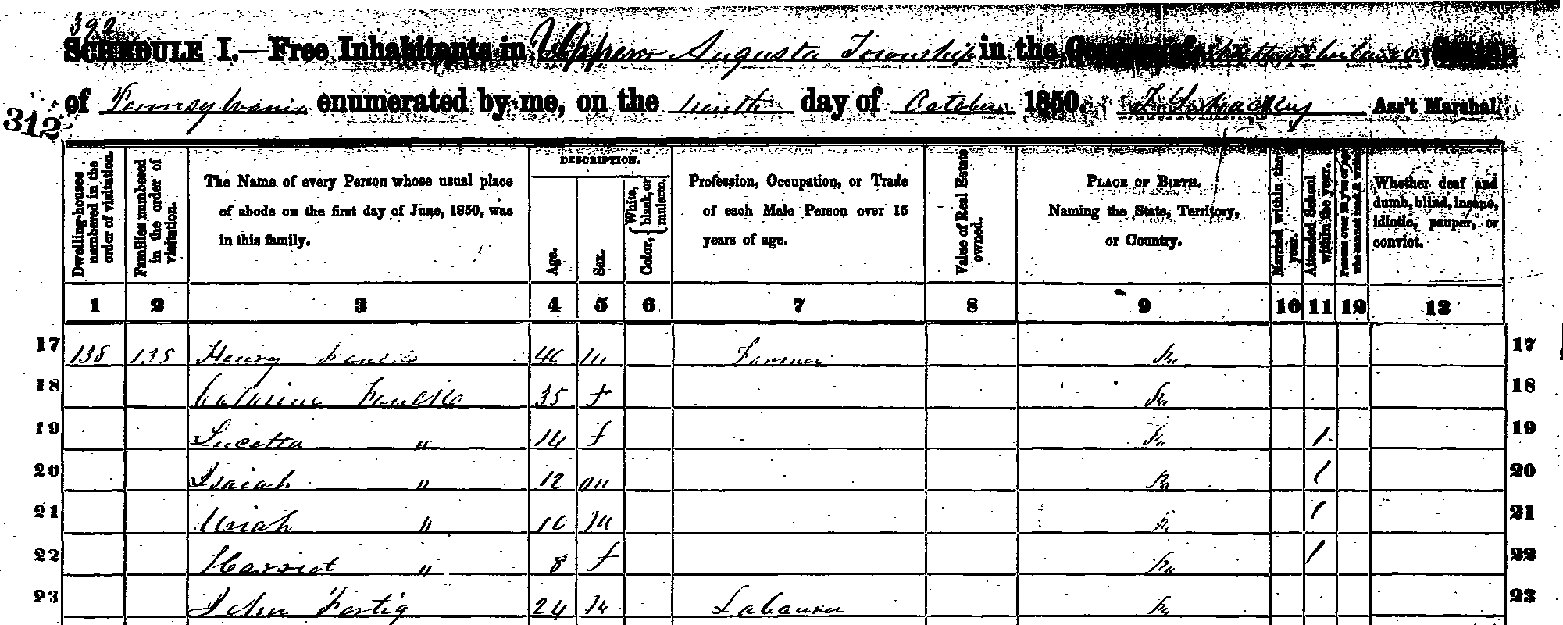 392
SCHEDULE I.—Free Inhabitants in Upper Augusta Township in the County of Northumberland State
of Pennsylvania enumerated by me, on the ninth day of October 1850. Ass't Marshal.
312
Dwelling-houses numbered in the order of visitation.
Families numbered in the order of visitation.
The Name of every Person whose usual place of abode on the first day of June, 1850, was in this family.
DESCRIPTION.
Age.
Sex.
Color, { White, black, or mulatto.
Profession, Occupation, or Trade of each Male Person over 15 years of age.
Value of Real Estate owned.
PLACE OF BIRTH. Naming the State, Territory, or Country.
Married within the year.
Attended School within the year.
Persons over 20 y'rs of age who cannot read & write.
Whether deaf and dumb, blind, insane, idiotic, pauper, or convict.
1 2 3 4 5 6 7 8 9 10 11 12 13
17 138 135 Henry 40 m Farmer Pa 17
18 Catharine 35 f Pa 18
19 Lucetta " 14 f Pa 1 19
20 Isaiah " 12 m Pa 1 20
21 Uriah " 10 M Pa 1 21
22 Harriet " 8 f Pa 1 22
23 John Fertig 24 M Labourer Pa 23